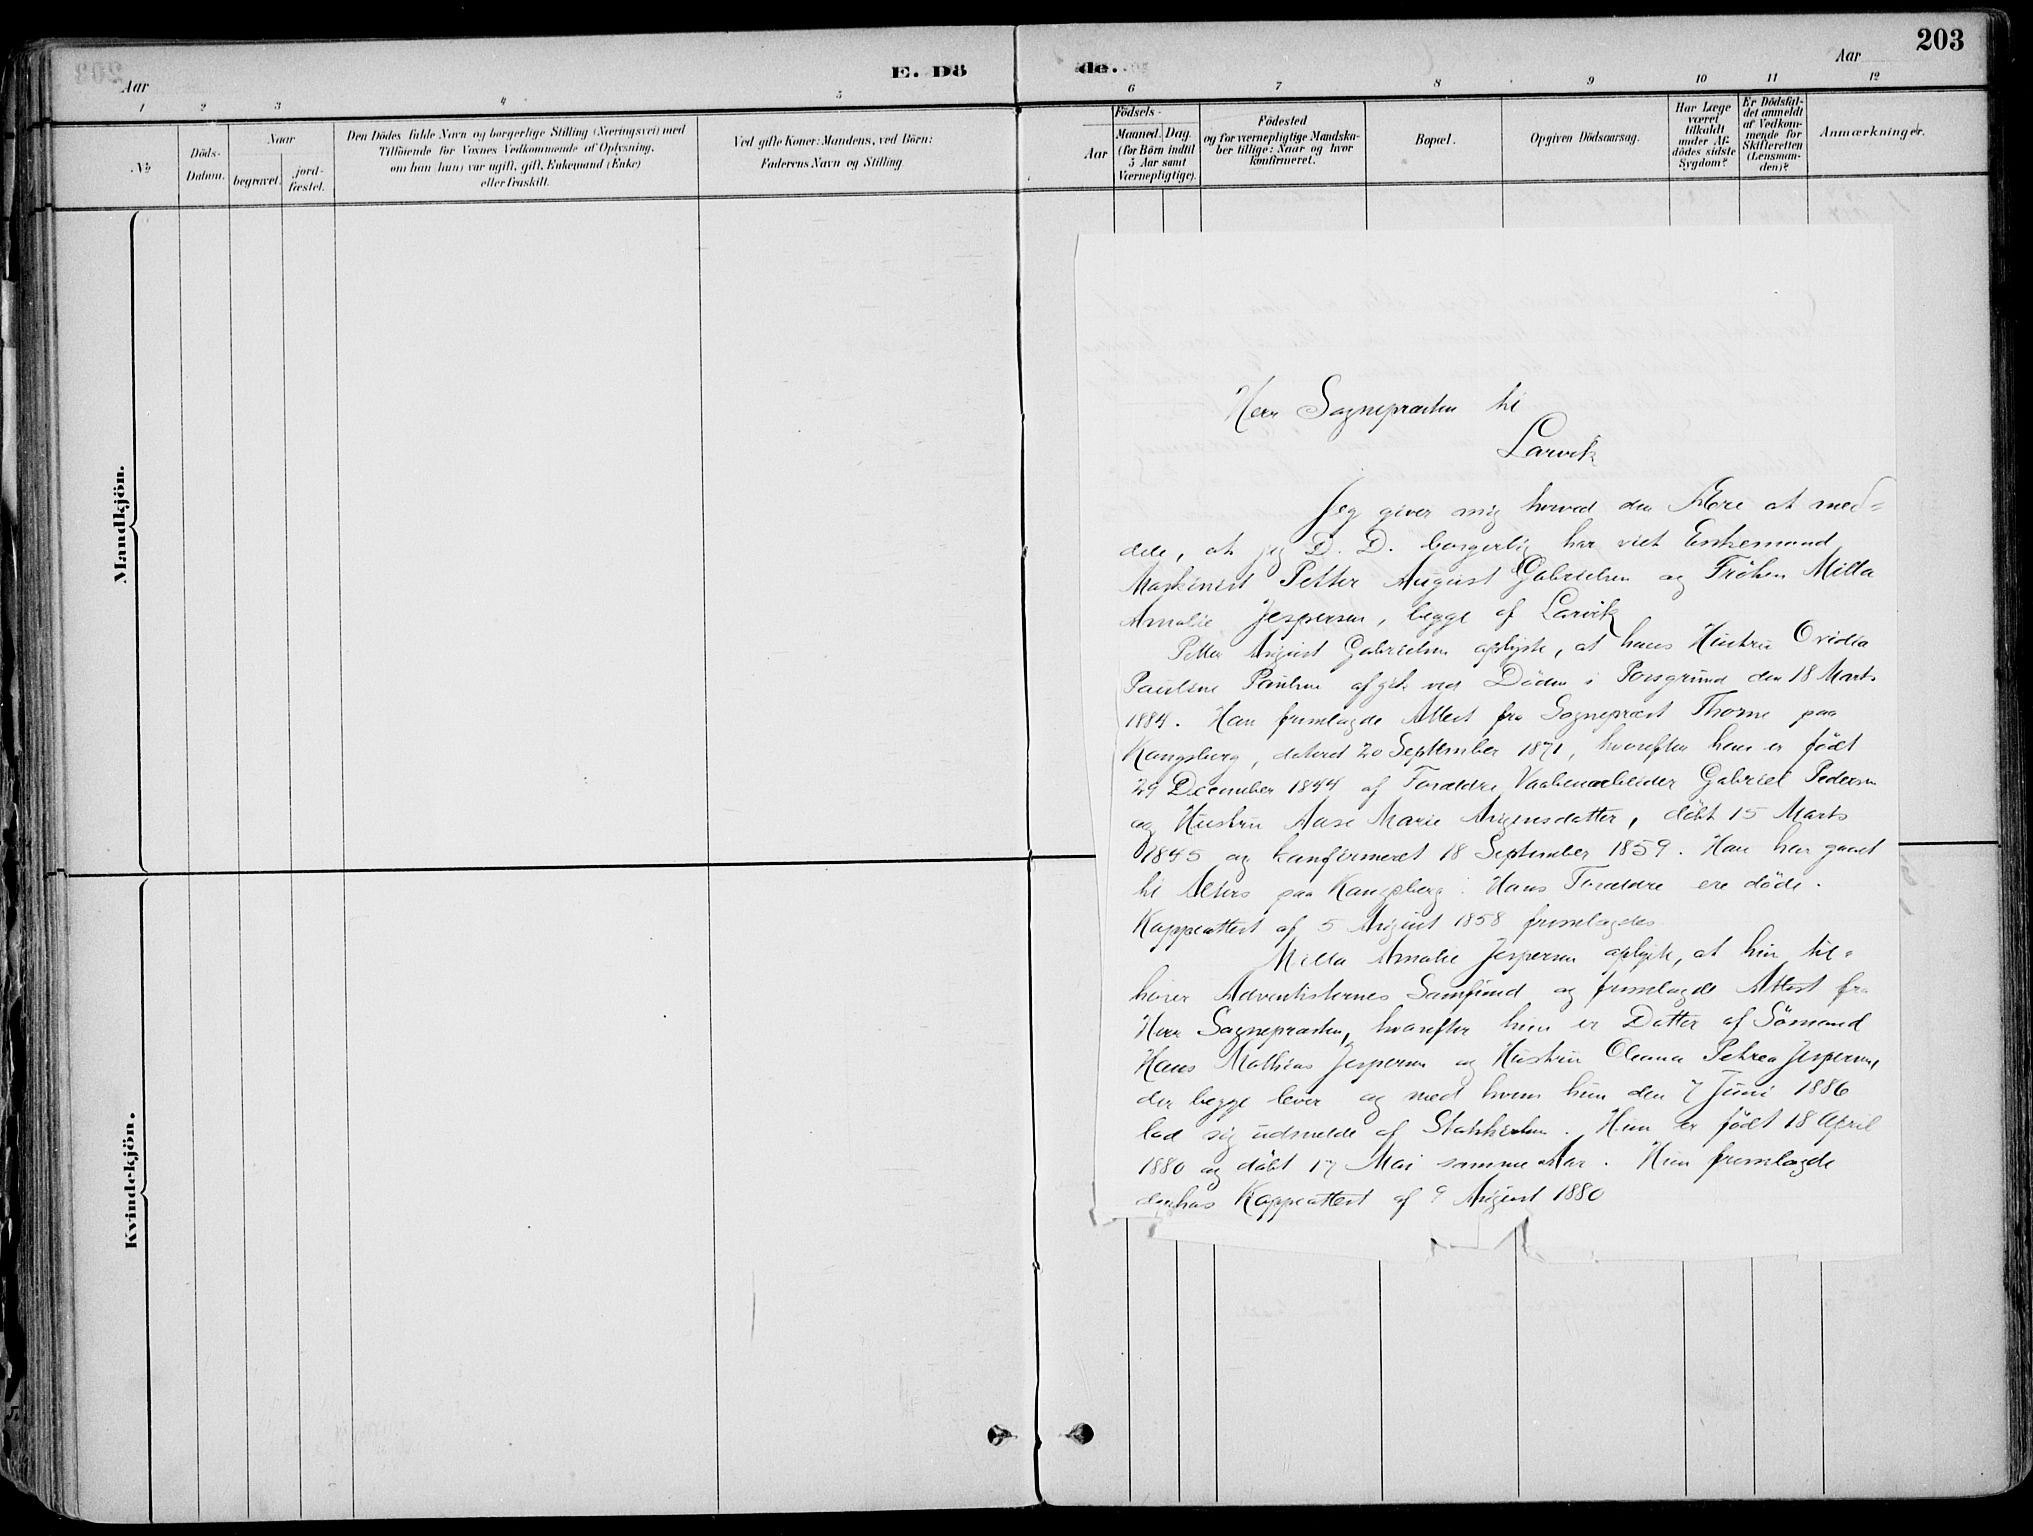 203
E. Dö
de.
Aar
Aar
1 2 3 4 5 6 7 8 9 10 11 12
No
Döds-Datum.
Naar
begravet.
jord-fæstet.
Den Dödes fulde Navn og borgerlige Stilling (Næringsvei) med
Tilföiende for Voxnes Vedkommende af Oplysning,
om han (hun) var ugift, gift, Enkemand (Enke)
eller fraskilt.
Ved gifte Koner: Mandens, ved Börn:
Faderens Navn og Stilling
Födsels-
Aar
Maaned. Dag.
(for Börn indtil
5 Aar samt
Værnepligtige).
Födested
og for værnepligtige Mandska-
ber tillige: Naar og hvor
konfirmeret.
Bopæl.
Opgiven Dödsaarsag.
Har Læge
været
tilkaldt
under Af-
dödes sidste
Sygdom?
Er Dödsfal-
det anmeldt
af Vedkom-
mende for
Skifteretten
(Lensman-
den)?
Anmærkninger.
Mandkjön.
Kvindekjön.
Herr Sognepræsten til
Larvik
Jeg giver mig herved den Ære at med-
dele, at jeg D. D. borgerlig har viet Enkemand
Maskinist Petter August Gabrielsen og Fröken Milla
Amalie Jespersen, begge af Larvik
Petter August Gabrielsen oplyste, at hans Hustru Ovidia
Pauline Paulsen afgik ved Döden i Porsgrund den 18 Marts
1884. Han fremlagde Attest fra Sognepræst Thorne paa
Kongsberg, dateret 20 September 1871, hvorefter han er födt
29 December 1844 af Forældre Vaabenarbeider Gabriel Pedersen
og Hustru Anse Marie Mogensdatter, döbt 15 Marts
1845 og konfirmeret 18 September 1859. Han har gaaet
til Alters paa Kongsberg. Hans Forældre ere döde.
Koppeattest af 5 August 1858 fremlagdes
Milla Amalie Jespersen oplyste, at hun til-
hörer Adventisternes Samfund og fremlagde Attest fra
Herr Sognepræsten, hvorefter hun er Datter af Sömand
Hans Mathias Jespersen og Hustru Oleana Petrea Jespersen,
der begge lever og med hvem hun den 7 Juni 1886
lod sig udmelde af Statskirken. Hun er födt 18 April
1880 og döbt 17 Mai samme Aar. Hun fremlagde
derhos Koppeattest af 9 August 1880